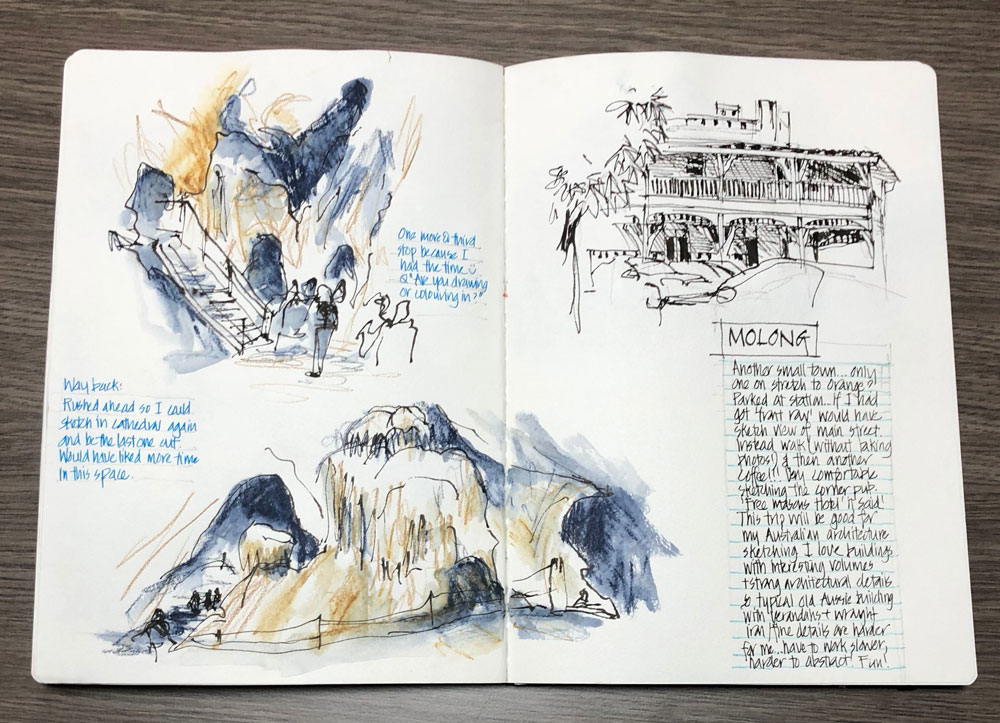 One more & third
stop because I
had the time
& "Are you drawing
or colouring in?"
Way back:
Rushed ahead so I could
sketch in cathedral again
and be the last one out.
Would have liked more time
in this space.
MOLONG
Another small town... only
one on stretch to Orange?
Parked at station... If I had
got 'front row' would have
sketch view of main street.
Instead walk (without taking
photos!) & then another
coffee!!! Very comfortable
sketching the corner pub.
'Free masons Hotel' it said!
This trip will be good for
my Australian architecture
sketching. I love buildings
with interesting volumes
+ strong architectural details
so typical old Aussie building
with verandahs + wraught
iron (the details are harder
for me... have to work slower,
harder to abstract! Fun!